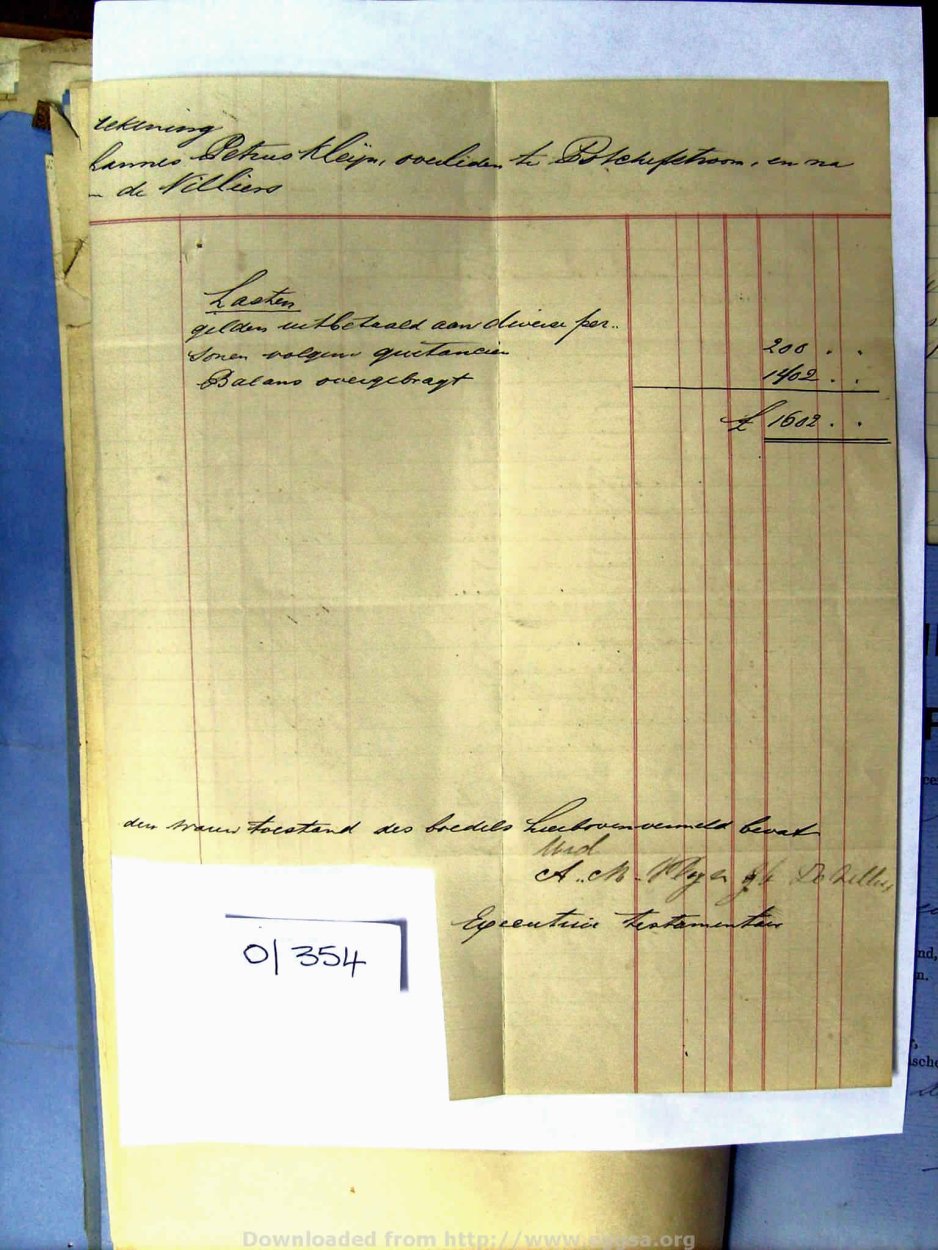 rekening
hannes Petrus Kleijn, overleden te Potchefstroom, en na
de Villiers
Lasten
gelden uitbetaald aan diverse per..
sonen volgens quitancien 200 . .
Balans overgebragt 1402 . .
£ 1602 . .
den waren toestand des boedels hierbovenvermeld bevat
Wed
A. M. Kleyn gb De Villiers
Executrice testamentair
0/354
nd,
n.
Downloaded from http://www.eggsa.org